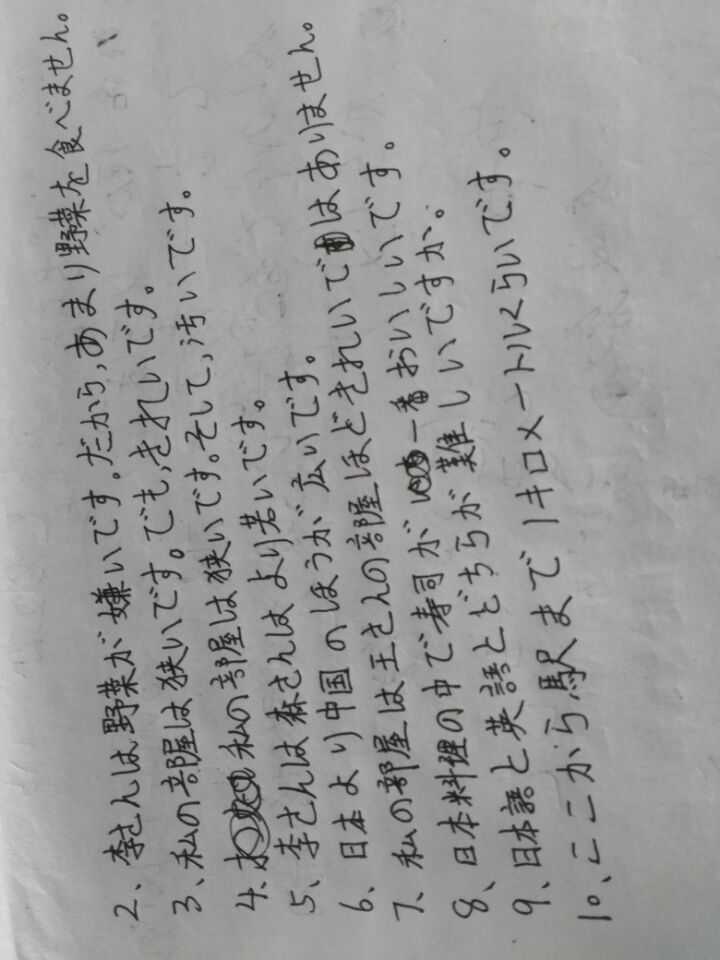 2、李さんは野菜が嫌いです。だから,あまり野菜を食べません。
3、私の部屋は狭いです。でも,きれいです。
4、私の部屋は狭いです。そして,汚いです。
5、李さんは森さんはより若いです。
6、日本より中国のほうが広いです。
7、私の部屋は王さんの部屋ほどきれいではありません。
8、日本料理の中で寿司が一番おいしいです。
9、日本語と英語とどちらが難しいですか。
10、ここから駅まで1キロメートルくらいです。